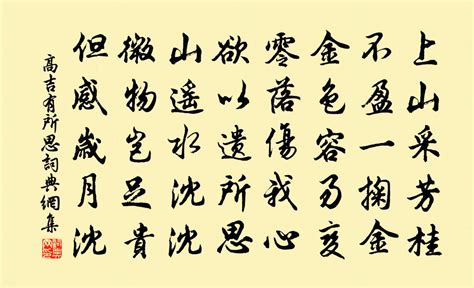 上山采芳桂
不盈一掬金
金色容易變
零落傷我心
欲以遺所思
山遙水沈沈
微物豈足貴
但感歲月沈
高吉有所思詞典網集